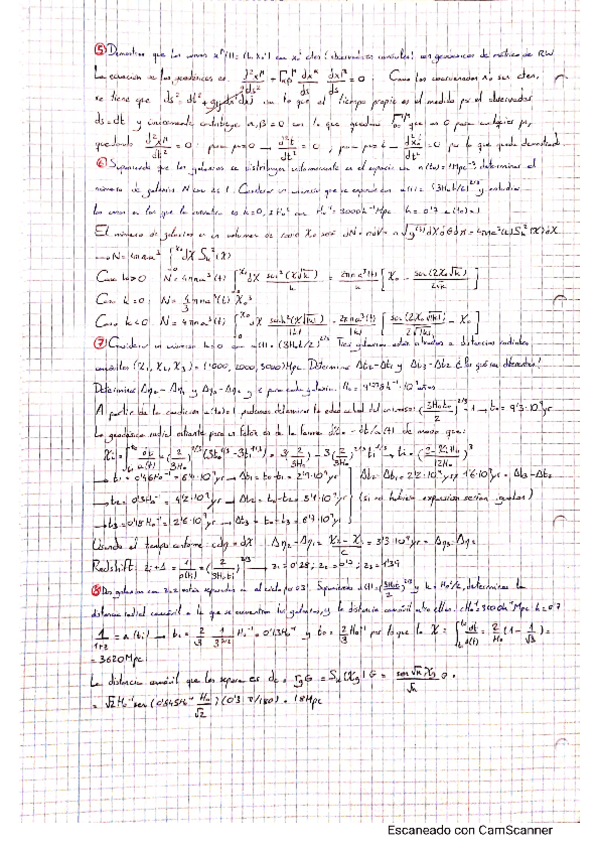 ⑤ Demostrar que las curvas x^μ(t) = (t, x₀ⁱ) con x₀ⁱ ctes (observadores comóviles) son geodésicas de métrica de RW
La ecuación de las geodésicas es d²x^μ/ds² + Γ^μ_αβ dx^α/ds dx^β/ds = 0. Como las coordenadas x₀ⁱ son ctes,
se tiene que ds² = dt² + con lo que el tiempo propio es el medido por el observador
ds = dt y únicamente α, β = 0 con lo que queda Γ^μ_00 que es 0 para cualquier μ,
quedando d²x^μ/dt² = 0 para μ=0 → d²t/dt² = 0, para μ=i → d²x₀ⁱ/dt² = 0 por lo que queda demostrado
⑥ Suponiendo que las galaxias se distribuyen uniformemente en el espacio con n(t₀) = 1 Mpc⁻³ determinar el
número de galaxias N con z ≤ 1. Considerar un universo que se expande con a(t) = (3H₀t/2)^2/3 y estudiar
los casos en los que la curvatura es k=0, ±H₀² con H₀⁻¹ = 3000 h⁻¹ Mpc h = 0'7 a(t₀) = 1
El número de galaxias en un volumen de radio χ₀ será dN = n dV = n √g⁽³⁾ dχ dθ dφ = 4πna³(t) S_k²(χ) dχ
→ N = 4πna³ ∫₀^χ₀ dχ S_k²(χ)
Caso k>0 N = 4πna³(t) ∫₀^χ₀ dχ sen²(χ√k)/k = 2πna³(t)/k [χ₀ − sen(2χ₀√k)/2√k]
Caso k=0 N = 4/3 πna³(t) χ₀³
Caso k<0 N = 4πna³(t) ∫₀^χ₀ dχ senh²(χ√|k|)/|k| = 2πna³(t)/|k| [senh(2χ₀√|k|)/2√|k| − χ₀]
⑦ Considerar un universo k=0 con a(t) = (3H₀t/2)^2/3. Tres galaxias están situadas a distancias radiales
comóviles (χ₁, χ₂, χ₃) = (1000, 2000, 3000) Mpc. Determinar Δt₂−Δt₁ y Δt₃−Δt₂ ¿Por qué son diferentes?
Determinar Δη₂−Δη₁ y Δη₃−Δη₂ y z para cada galaxia.
A partir de la condición a(t₀)=1 podemos determinar la edad actual del universo: (3H₀t₀/2)^2/3 = 1 → t₀ = 9'3·10⁹ yr
La geodésica radial entrante para un fotón es de la forma de modo que:
χᵢ = ∫ dt/a(t) = (2/3H₀)^2/3 (3t₀^1/3 − 3tᵢ^1/3)
→ t₁ = 0'46H₀⁻¹ = 6'4·10⁹ yr → Δt₁ = t₀−t₁ = 2'9·10⁹ yr
→ t₂ = 0'3H₀⁻¹ = 4'2·10⁹ yr → Δt₂ = t₀−t₂ = 5'1·10⁹ yr (si no hubiera expansión serían iguales)
→ t₃ = 0'18H₀⁻¹ = 2'6·10⁹ yr → Δt₃ = t₀−t₃ = 6'7·10⁹ yr
Usando el tiempo conforme: cdη = dχ Δη₂−Δη₁ = (χ₂−χ₁)/c = 3'3·10⁹ yr = Δη₃−Δη₂
Redshift: zᵢ+1 = 1/a(tᵢ) = (2/3H₀tᵢ)^2/3 → z₁ = 0'28; z₂ = 0'7; z₃ = 1'39
⑧ Dos galaxias con z=2 están separadas en el cielo por 0'3°. Suponiendo a(t) = (3H₀t/2)^2/3 y k = H₀²/2, determinar la
distancia radial comóvil a la que se encuentran las galaxias, y la distancia comóvil entre ellas. (H₀⁻¹ = 3000h⁻¹ Mpc h = 0.7
1/(1+z) = a(t₁) → t₁ = 2/3 · 1/3^3/2 H₀⁻¹ = 0'13H₀⁻¹ y t₀ = 2/3 H₀⁻¹ por lo que la χ = ∫ dt/a(t) = 2/H₀ (1 − 1/√3) =
= 3620 Mpc
La distancia comóvil que los separa es d_c = r_g θ = S_k(χ_g) θ = sen√k χ_g/√k θ =
= √2 H₀⁻¹ sen(0'845H₀⁻¹ H₀/√2)(0'3 π/180) = 18 Mpc
Escaneado con CamScanner